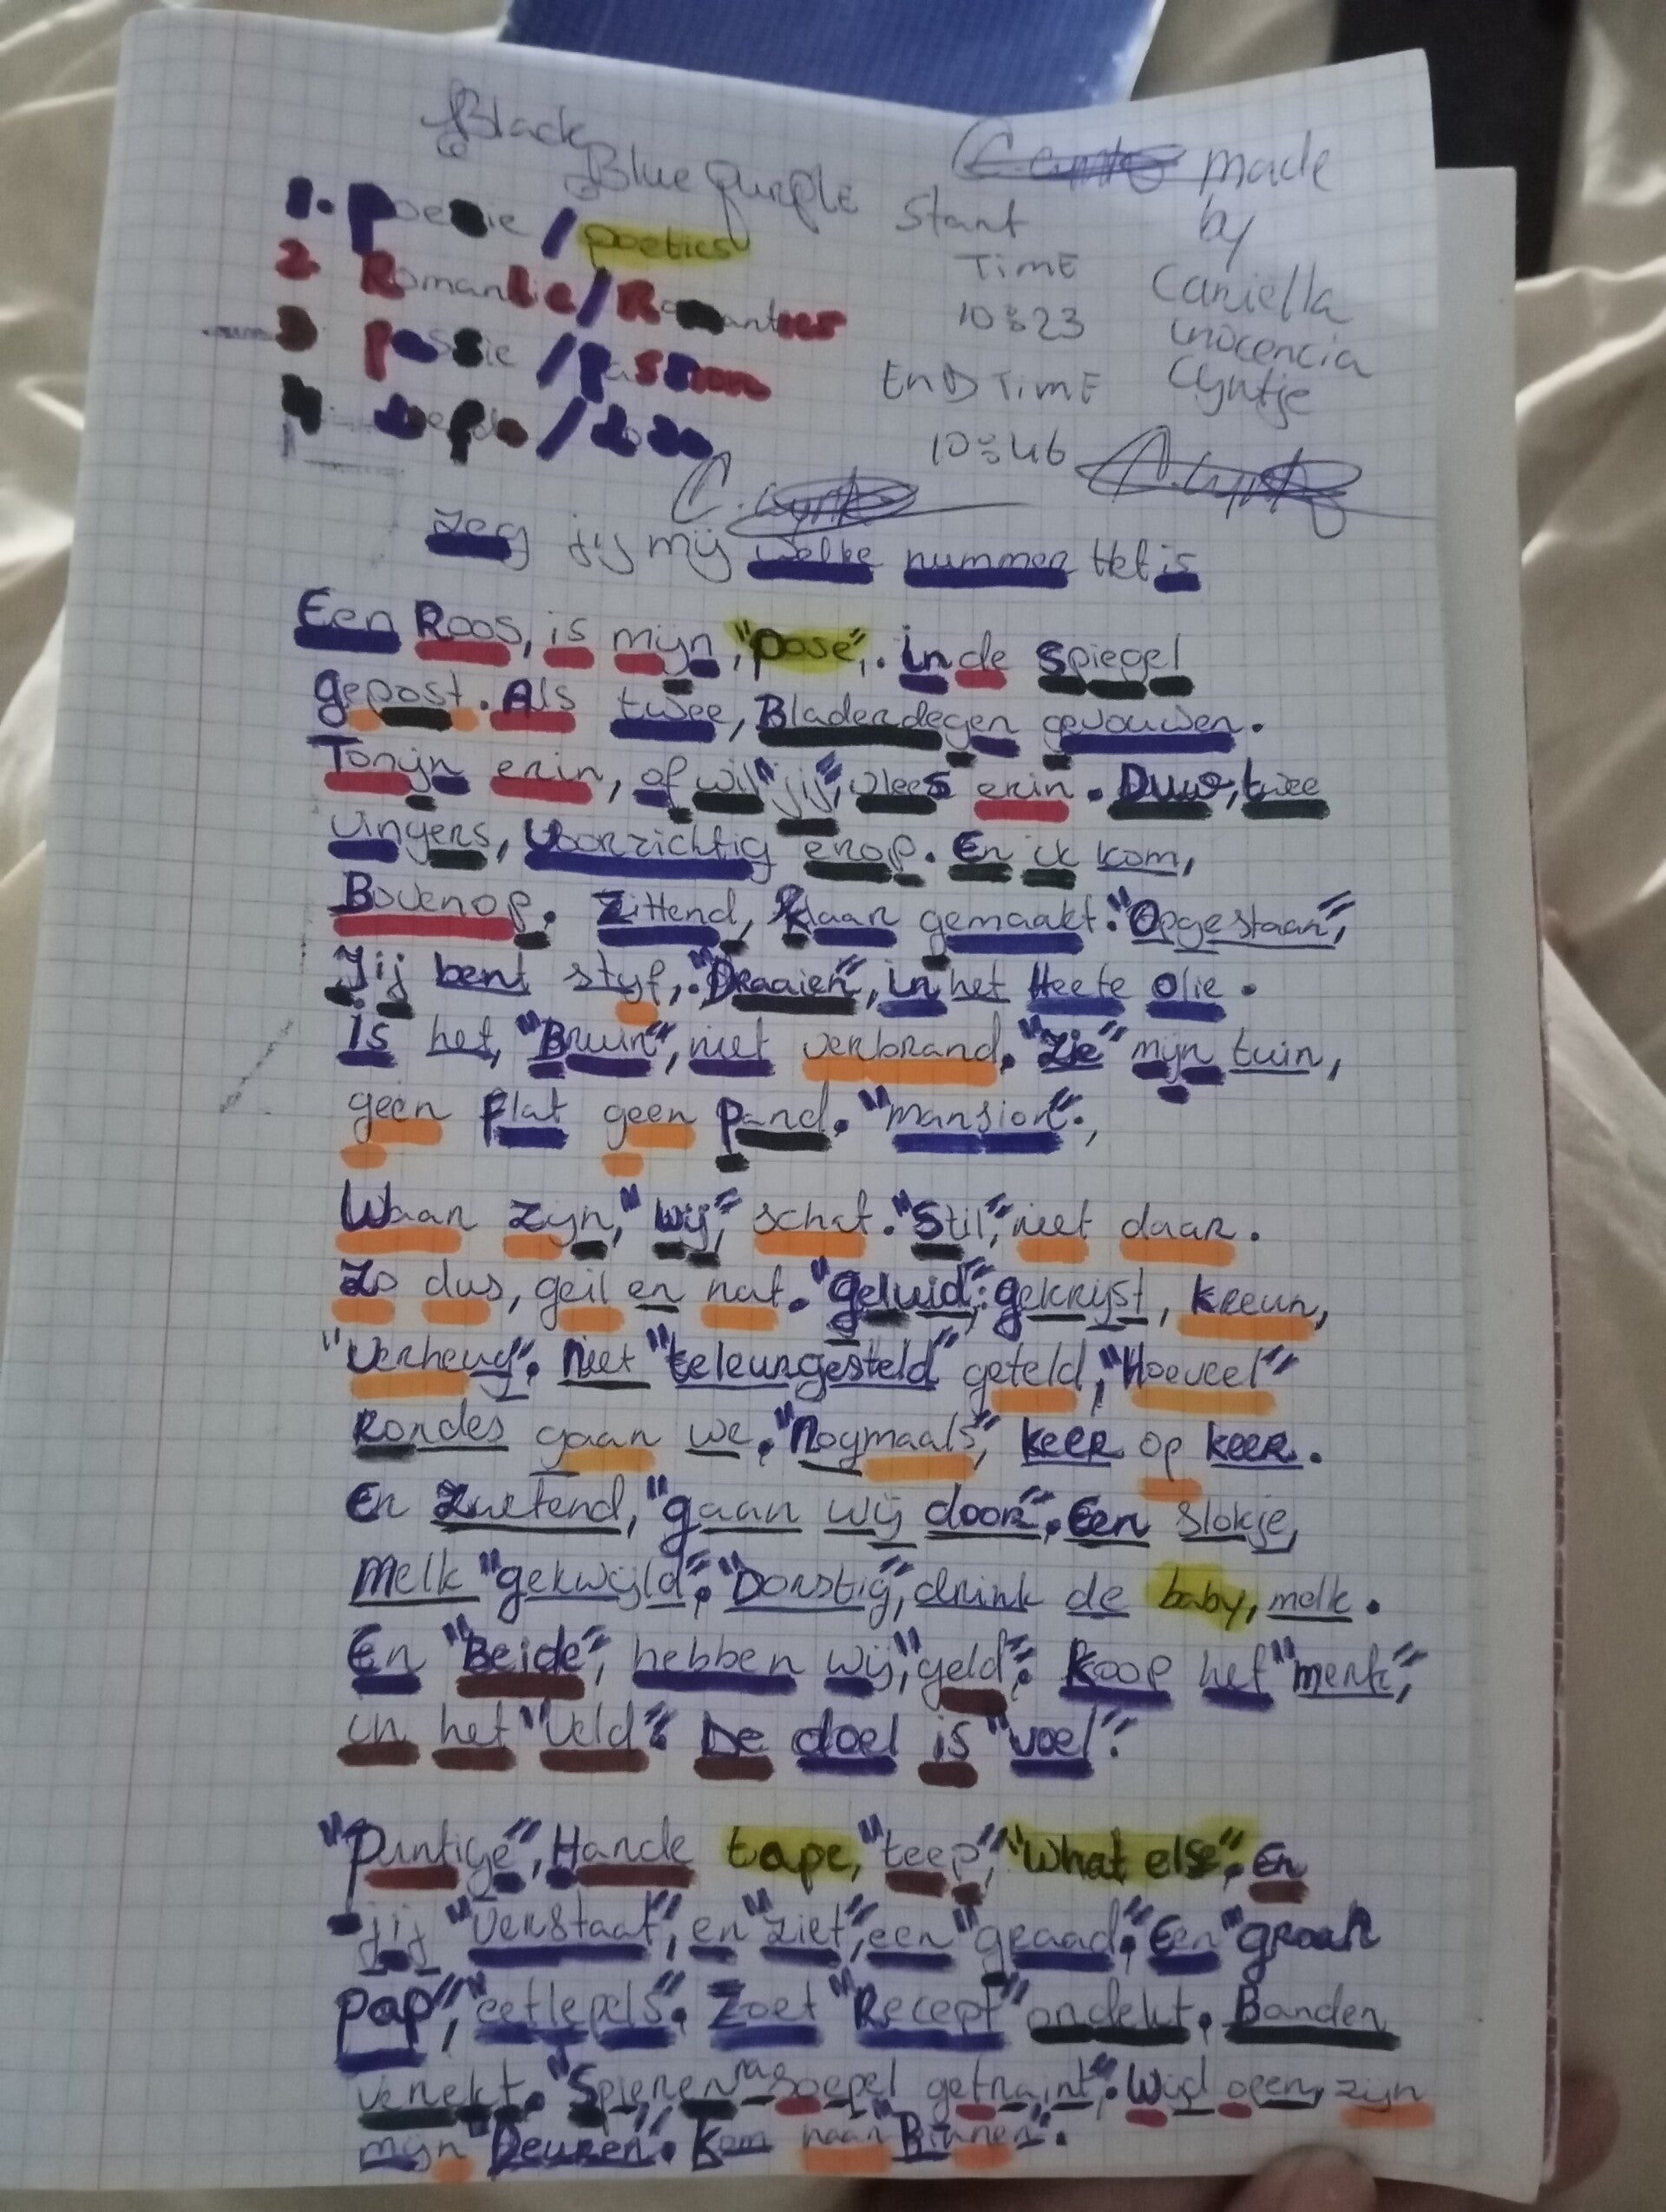 Black
Blue Purple
made
by
Cariella
inocencia
Cyntje
Start
TimE
10:23
EnD TimE
10:46
1. Poezie / poetics
2 Romantic / Romantics
3 passie / Passion
4 /
C. Cyntje
Zeg jij mij welke nummer Het is
Een Roos, is mijn, "pose",. in de Spiegel
gepost. Als twee, Bladerdegen gevouwen.
Tonijn erin, of wil "jij", vlees erin. Duw, twee
vingers, voorzichtig erop. En ik kom,
Bovenop. Zittend, klaar gemaakt. "Opgestaan",
Jij bent styf,. "Draaien", in het Heete Olie.
is het, "Bruin", niet verbrand. "Zie" mijn tuin,
geen flat geen pand. "mansion".,
Waar zijn, "wij", schat. "Stil", niet daar.
Zo dus, geil en nat. "geluid", gekrijst, kreun,
"Verheug". Niet "teleurgesteld" geteld, "Hoeveel"
Rondes gaan we. "Nogmaals", keer op keer.
En Zwetend, "gaan wij door". Een slokje,
Melk "gekwijld". "Dorstig", drink de baby, melk.
En "Beide", hebben wij, "geld". Koop het "merk",
in het "Veld". De doel is "voel".
"Puntige", Harde tape, "teep", "What else". En
jij "Verstaat", en "ziet", een "graad". Een "graan
pap", "eetlepels". Zoet "Recept" ondekt. Banden
verrekt. "Spieren" soepel getraint". Wijd open, zijn
mijn "Deuren". Kom naar "Binnen".